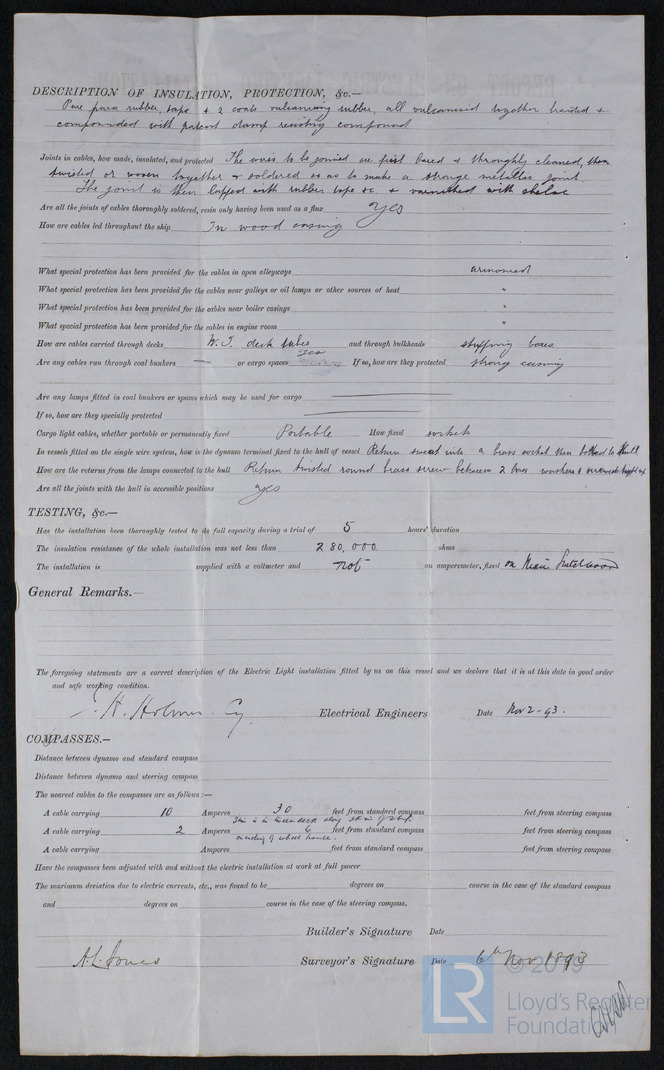 DESCRIPTION OF INSULATION, PROTECTION, &c.—
Pure para rubber, tape & 2 coats vulcanising rubber, all vulcanised together braided &
compounded with patent damp resisting compound
Joints in cables, how made, insulated, and protected The wires to be joined are first bared & throughly cleaned, then
twisted or woven together & soldered so as to make a stronge metallic joint.
The joint is then lapped with rubber tape &c & varnished with shelac
Are all the joints of cables thoroughly soldered, resin only having been used as a flux yes
How are cables led throughout the ship In wood casing
What special protection has been provided for the cables in open alleyways armoured
What special protection has been provided for the cables near galleys or oil lamps or other sources of heat "
What special protection has been provided for the cables near boiler casings "
What special protection has been provided for the cables in engine room "
How are cables carried through decks W.T. deck tubes and through bulkheads stuffing boxes
Are any cables run through coal bunkers — or cargo spaces yes If so, how are they protected strong casing
Are any lamps fitted in coal bunkers or spaces which may be used for cargo
If so, how are they specially protected
Cargo light cables, whether portable or permanently fixed Portable How fixed sockets
In vessels fitted on the single wire system, how is the dynamo terminal fixed to the hull of vessel Return sweat into a brass socket then bolted to hull
How are the returns from the lamps connected to the hull Return twisted round brass screw between 2 brass washers &
Are all the joints with the hull in accessible positions yes
TESTING, &c.—
Has the installation been thoroughly tested to its full capacity during a trial of 5 hours' duration
The insulation resistance of the whole installation was not less than 280,000 ohms
The installation is supplied with a voltmeter and not an amperemeter, fixed on Main Switchboard
General Remarks.—
The foregoing statements are a correct description of the Electric Light installation fitted by us on this vessel and we declare that it is at this date in good order
and safe working condition.
J. H. Holmes Cy Electrical Engineers Date Nov 2-93.
COMPASSES.—
Distance between dynamo and standard compass
Distance between dynamo and steering compass
The nearest cables to the compasses are as follows:—
A cable carrying 10 Amperes 30 feet from standard compass feet from steering compass
This is in tween deck along skin of ship
A cable carrying 2 Amperes 6 feet from standard compass feet from steering compass
on ceiling of wheel house.
A cable carrying Amperes feet from standard compass feet from steering compass
Have the compasses been adjusted with and without the electric installation at work at full power
The maximum deviation due to electric currents, etc., was found to be degrees on course in the case of the standard compass
and degrees on course in the case of the steering compass.
Builder's Signature Date
A.L. Jones Surveyor's Signature Date 6th Nov 1893
LR © 2019
Lloyd's Register
Foundation